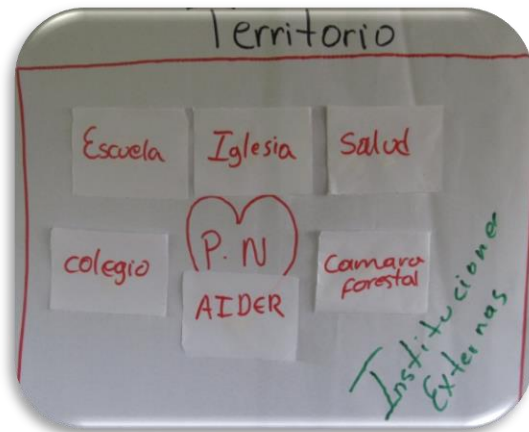 Territorio
Escuela
Iglesia
Salud
colegio
P. N
Camara
forestal
AIDER
Instituciones
Externas